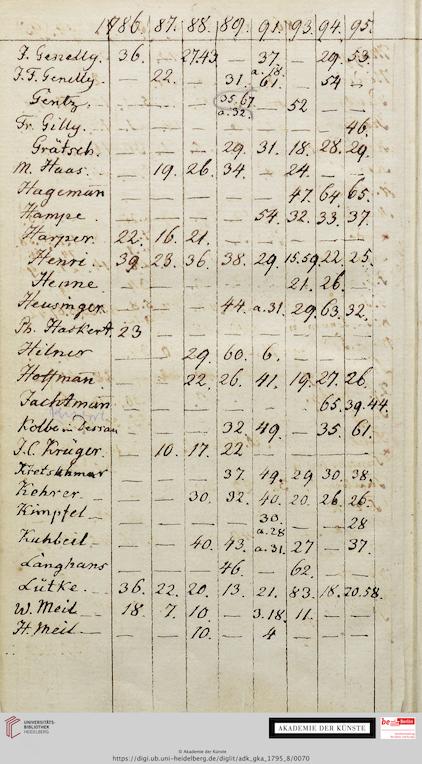 1786. 87. 88. 89. 91. 93. 94. 95.
F. Genelly. 36. — 27.43 — 37. — 29. 53.
J. F. Genelly. — 22. — 31. a.18. 61. — 54 —
Gentz. — — — 35.67. a.32. — 52 — —
Fr. Gilly. — — — — — — — 46.
Grätsch. — — — 29. 31. 18. 28. 29.
M. Haas. — 19. 26. 34. — 24. — —
Hageman — — — — — 47. 64. 65.
Hampe. — — — — 54. 32. 33. 37.
Harper. 22. 16. 21. — — — — —
Henri. 39. 23. 36. 38. 29. 15.59. 22. 25.
Henne — — — — — 21. 26. —
Heusinger. — — — 44. a.31. 29. 63. 32.
Th. Haskert. 23
Hilner — — 29. 60. 6. — — —
Hoffman — — 22. 26. 41. 19. 27. 26.
Jachtman — — — — — — 65. 39.44.
Kolbe in Dessau — — — 32. 49. — 35. 61.
J. C. Krüger. — 10. 17. 22 — — — —
Kretschmar — — — 37. 49. 29 30. 38.
Kohrer. — — 30. 32. 40. 20. 26. 26.
Kimpfel — — — — 30. a.28 — — 28
Kuhbeil — — — 40. 43. a.31. 27 — 37.
Langhans — — — 46. — 62. — —
Lütke. 36. 22. 20. 13. 21. 83. 18. 20.58.
W. Meil 18. 7. 10. — 3.18. 11. — —
H. Meil — — 10. — 4 — — —
UNIVERSITÄTS-
BIBLIOTHEK
HEIDELBERG
AKADEMIE DER KÜNSTE
be Berlin
© Akademie der Künste
https://digi.ub.uni-heidelberg.de/diglit/adk_gka_1795_8/0070